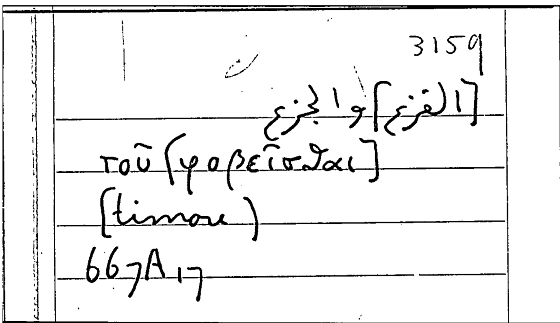 3159
[الفزع] والجزع
τοῦ [φοβεῖσθαι]
[timore)
667A17